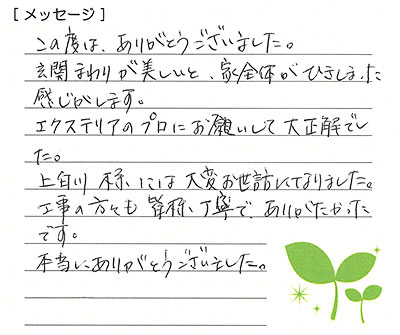 [ メッセージ ]
この度は、ありがとうございました。
玄関まわりが美しいと、家全体がひきしまった
感じがします。
エクステリアのプロにお願いして大正解でし
た。
上白川様には大変お世話になりました。
工事の方々も皆様、丁寧で、ありがたかった
です。
本当にありがとうございました。